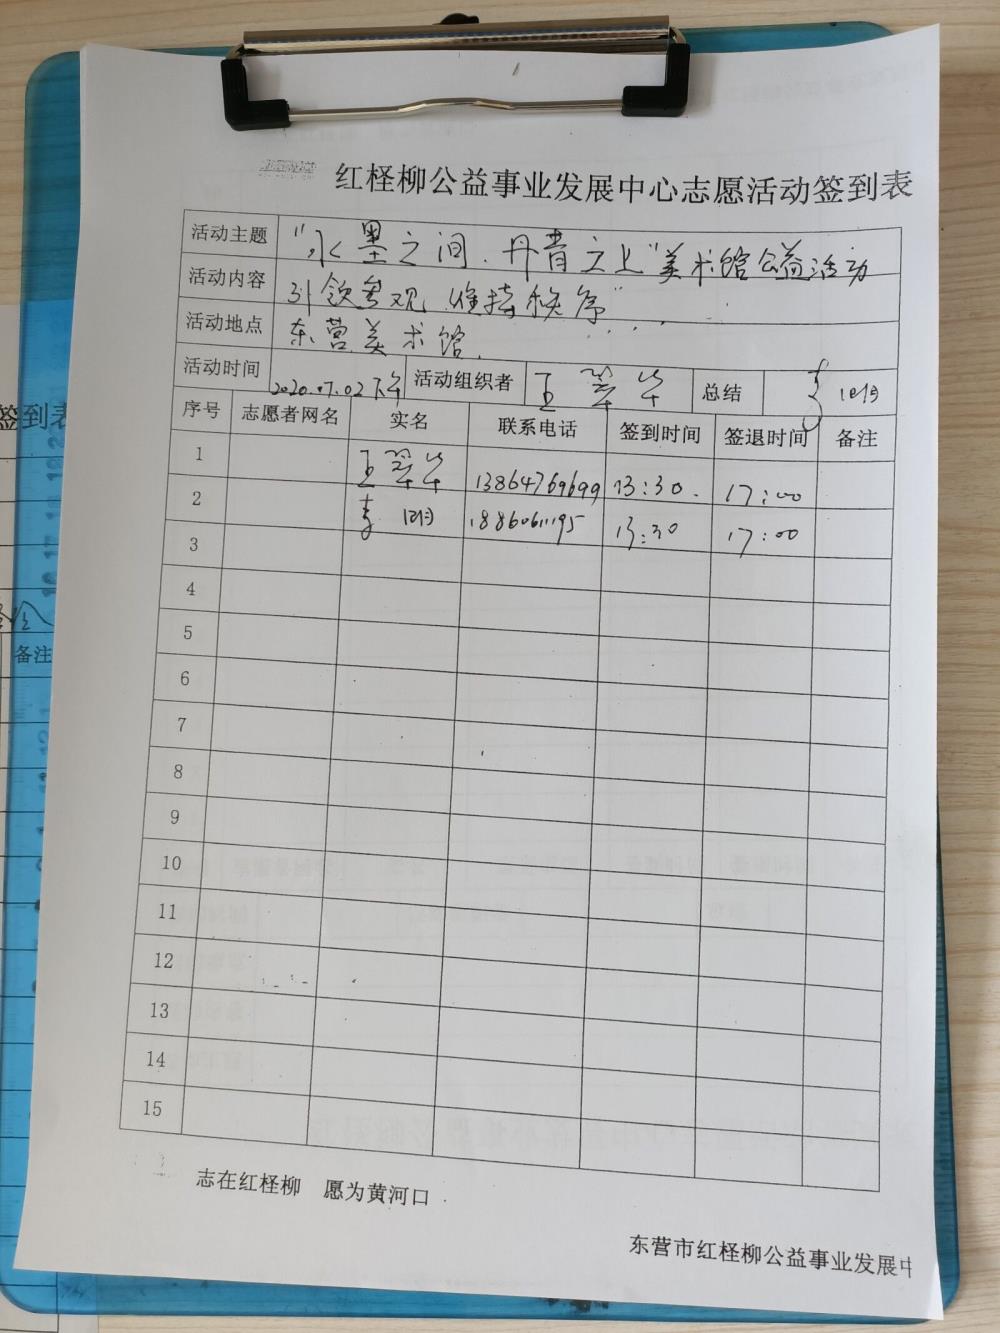 红柽柳公益事业发展中心志愿活动签到表
活动主题 "水墨之间、丹青之上"美术馆公益活动
活动内容 引领参观 维持秩序
活动地点 东营美术馆
活动时间 2020.07.02下午 活动组织者 王翠华 总结 李
序号 志愿者网名 实名 联系电话 签到时间 签退时间 备注
1 王翠华 13864769699 13:30 17:00
2 李 18860611195 13:30 17:00
3
4
5
6
7
8
9
10
11
12
13
14
15
志在红柽柳 愿为黄河口
东营市红柽柳公益事业发展中
签到表
备注